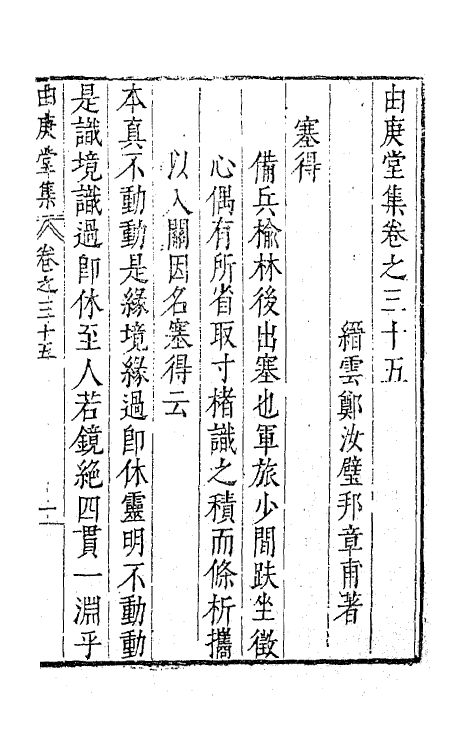 由庚堂集卷之三十五
縉雲鄭汝璧邦章甫著
塞得
備兵榆林後出塞也軍旅少間趺坐徵
心偶有所省取寸楮識之積而條析攜
以入關因名塞得云
本真不動動是緣境緣過即休靈明不動動
是識境識過即休至人若鏡絕四貫一淵乎
由庚堂集 卷之三十五 一